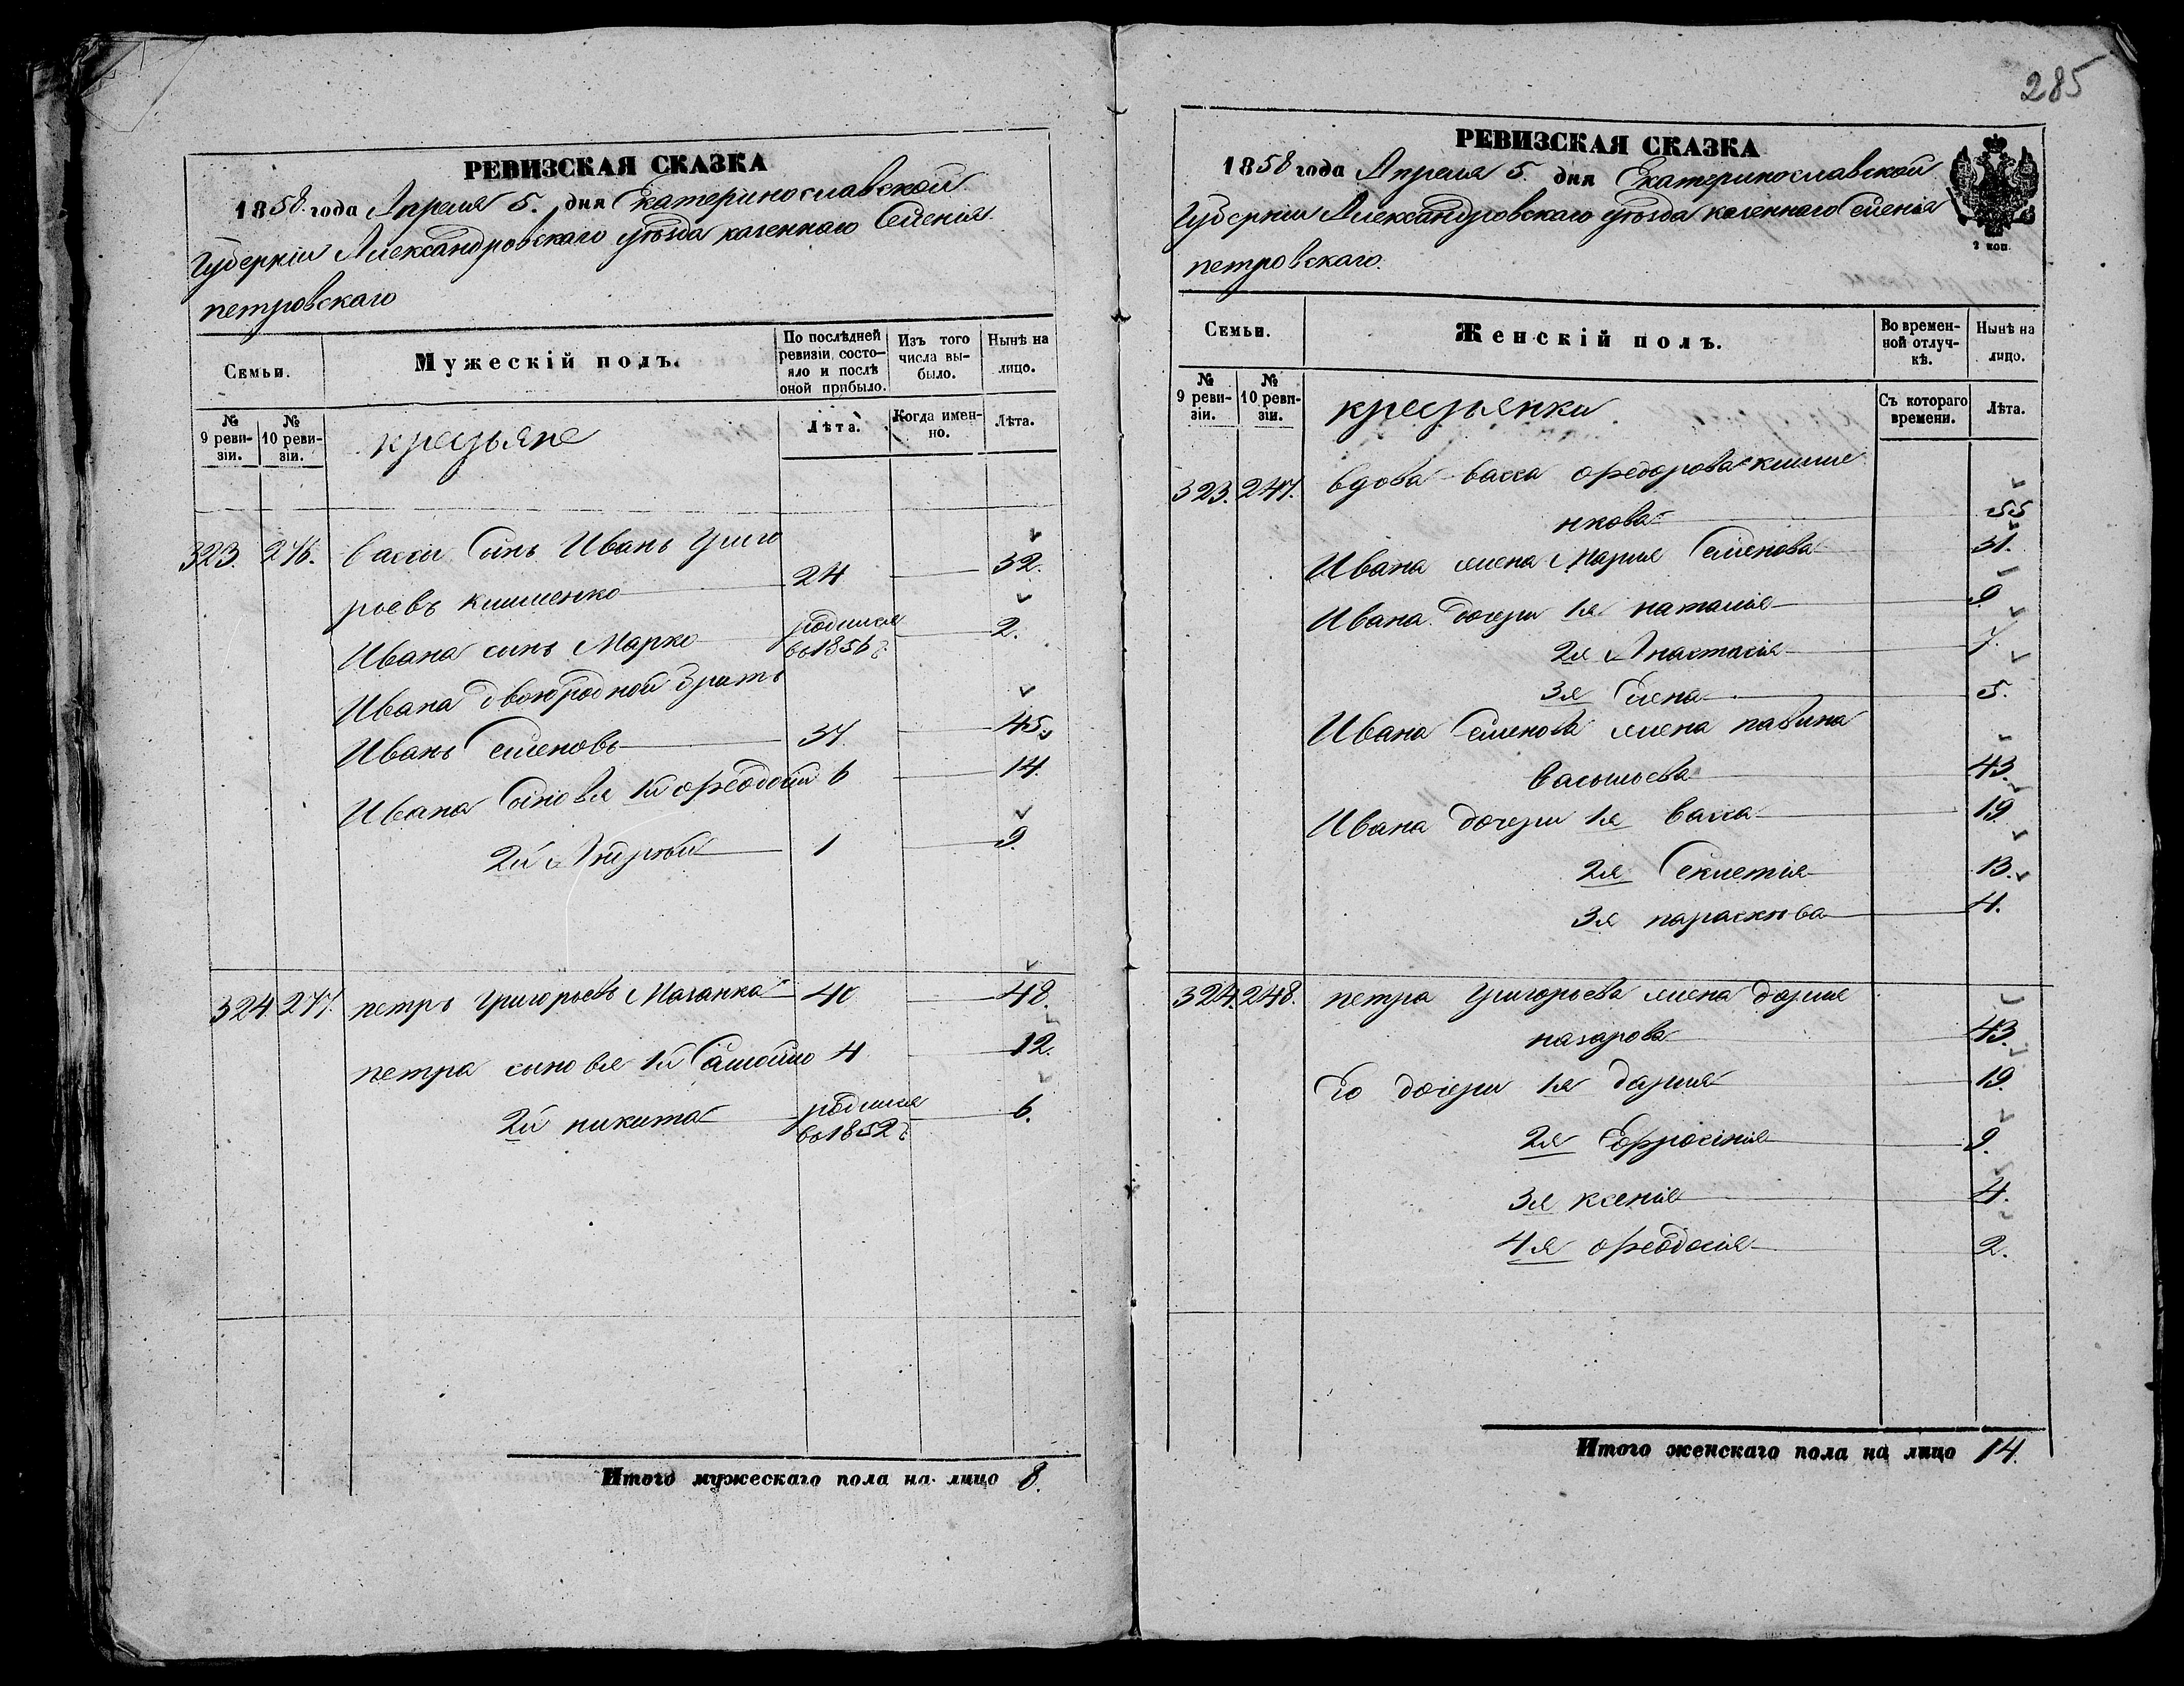 РЕВИЗСКАЯ СКАЗКА
1858 года Апреля 5. дня Екатеринославской
Губернiи Александровскаго уѣзда казеннаго Селенiя
петровскаго
Семьи.
Мужескiй полъ.
По послѣдней ревизiи состояло и послѣ оной прибыло.
Изъ того числа выбыло.
Нынѣ на лицо.
№ 9 ревизiи.
№ 10 ревизiи.
крестьяне
Лѣта.
Когда именно.
Лѣта.
323. 246. Вассы Сынъ Иванъ Григо
рьевъ клименко 24 32.
Ивана сынъ Марко родился во 1856 г. 2.
Ивана двоюродной братъ
Иванъ Семеновъ 37. 45.
Ивана Сыновя 1й Феодосiй 6 14.
2й Андрѣй 1 9.
324. 247. петръ Григорьевъ Маганка 40 48.
петра сыновя 1й Самойло 4 12.
2й никита родился во 1852 г. 6.
Итого мужескаго пола на лицо 8.
285
РЕВИЗСКАЯ СКАЗКА
1858 года Апреля 5. дня Екатеринославской
Губернiи Александровскаго уѣзда казеннаго Селенiя
петровскаго.
2 коп.
Семьи.
Женскiй полъ.
Во временной отлучкѣ.
Нынѣ на лицо.
№ 9 ревизiи.
№ 10 ревизiи.
крестьянки.
Съ котораго времени.
Лѣта.
323. 247. вдова васса Федорова климе
нкова 55
Ивана жена Марья Семенова 31.
Ивана дочери 1я наталiя 9
2я Анастасiя 7.
3я Елена 5.
Ивана Семенова жена павлина
Васильева 43.
Ивана дочери 1я васса 19
2я Секлетiя 13.
3я параскѣва 4.
324. 248. петра Григорьева жена дарья
назарова 43.
Его дочери 1я дарья 19
2я Ефросiнiя 9.
3я ксенiя 4.
4я Феодосiя 2.
Итого женскаго пола на лицо 14.